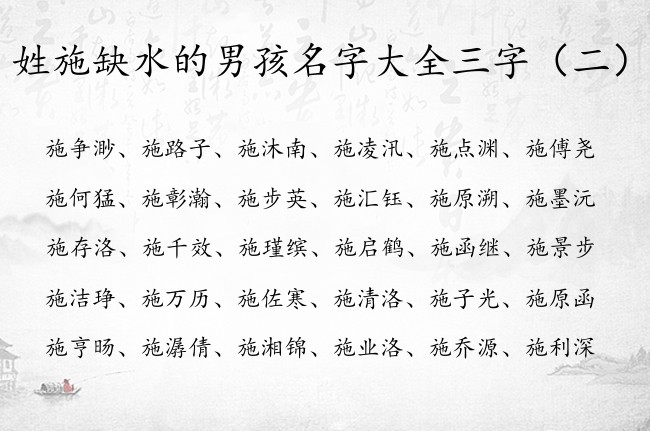 姓施缺水的男孩名字大全三字（二）
施争渺、施路子、施沐南、施凌汛、施点渊、施傅尧
施何猛、施彰瀚、施步英、施汇钰、施原溯、施墨沅
施存洛、施千效、施瑾缤、施启鹤、施函继、施景步
施洁琤、施万历、施佐寒、施清洛、施子光、施原函
施亨旸、施潺倩、施湘锦、施业洛、施乔源、施利深